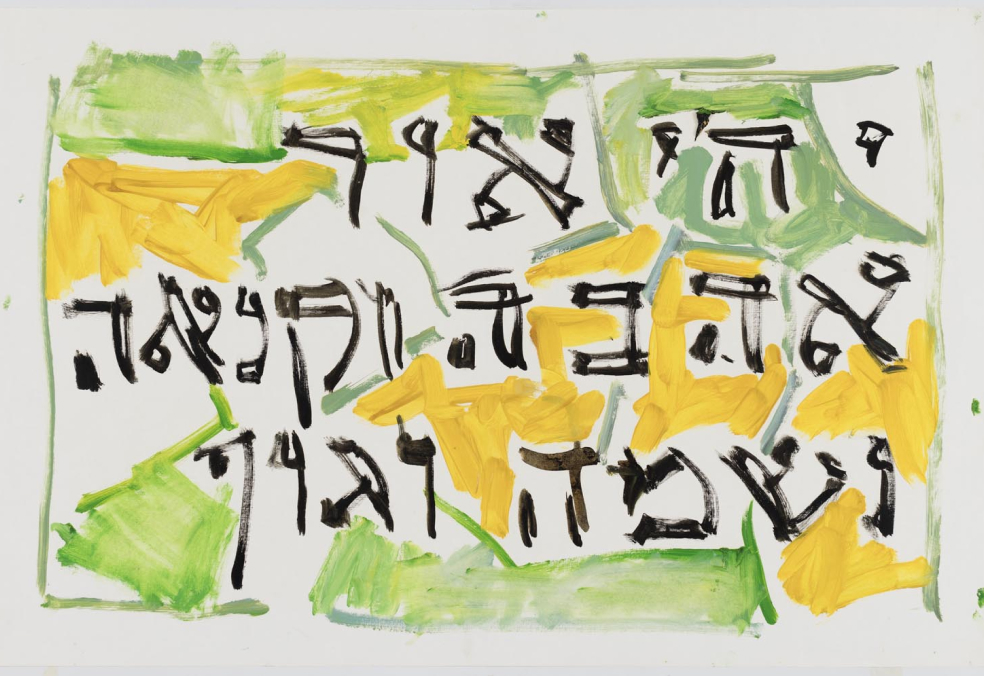 יהי אור
אהבה וקנאה
נשמה וגוף